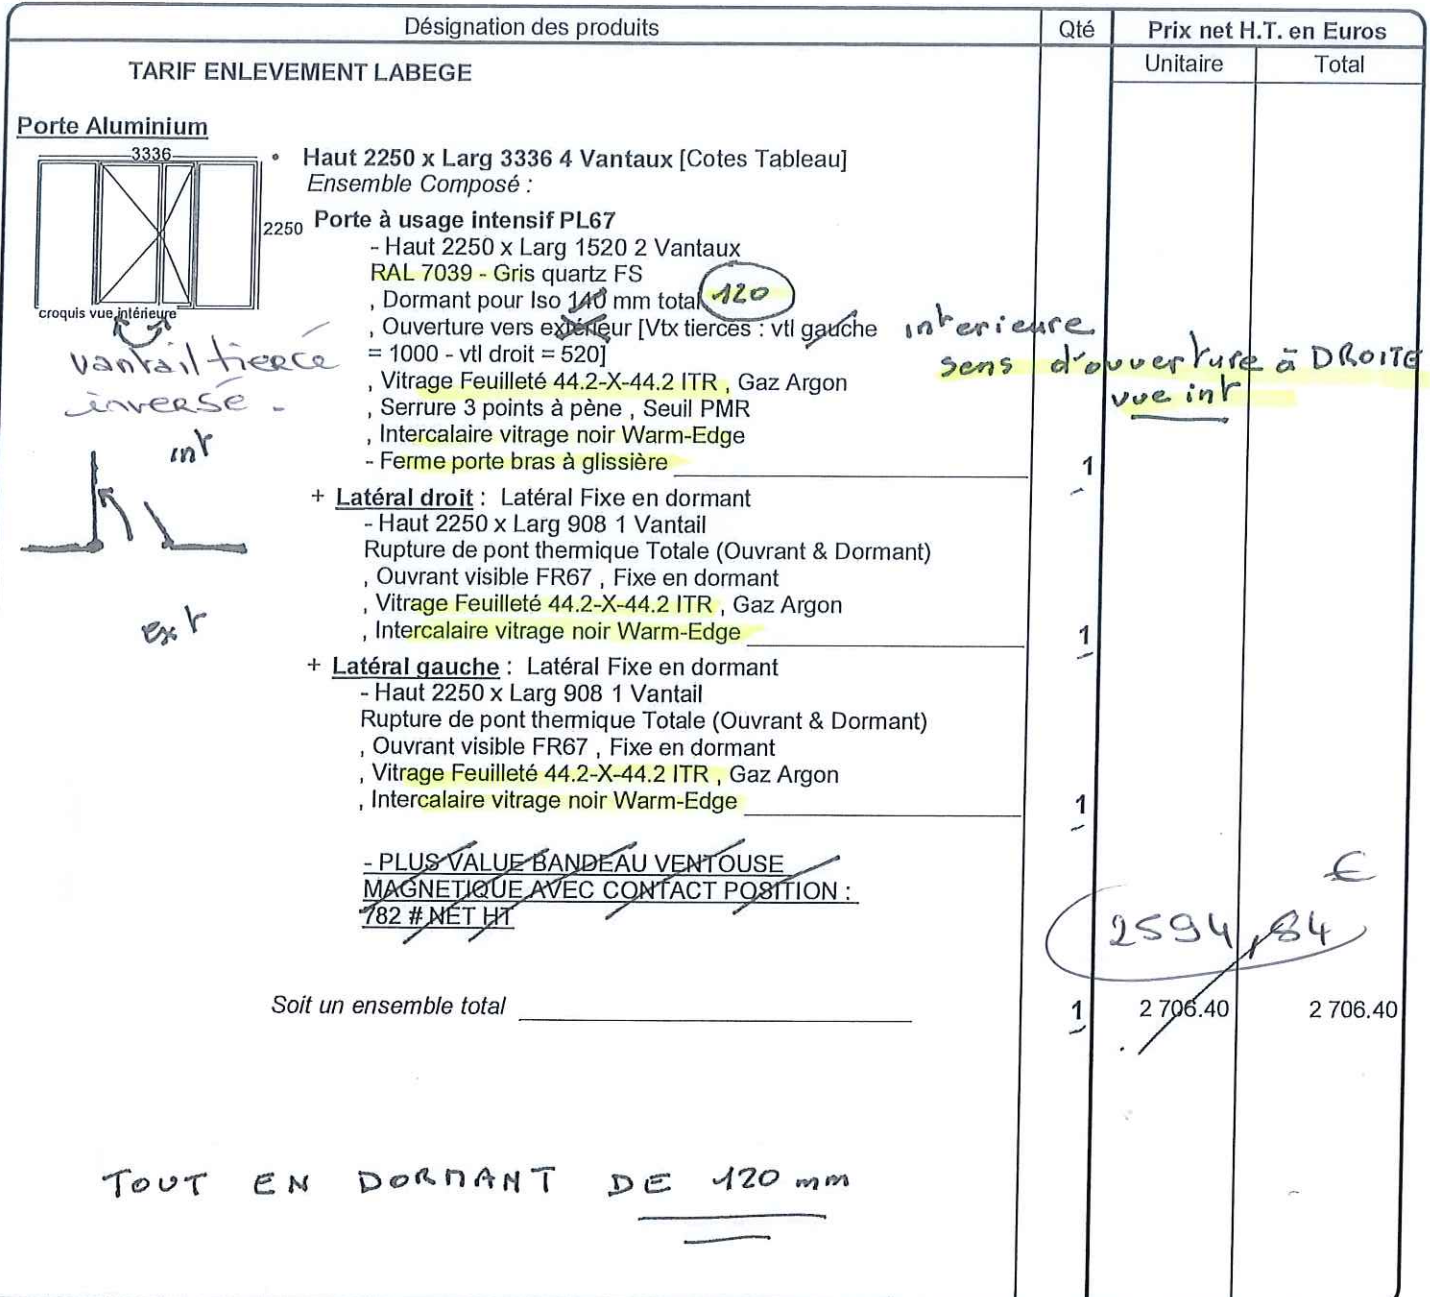 Désignation des produits Qté Prix net H.T. en Euros
Unitaire Total
TARIF ENLEVEMENT LABEGE
Porte Aluminium
3336
2250
croquis vue intérieure
vantail tiercé
inversé -
int
ext
• Haut 2250 x Larg 3336 4 Vantaux [Cotes Tableau]
Ensemble Composé :
Porte à usage intensif PL67
- Haut 2250 x Larg 1520 2 Vantaux
RAL 7039 - Gris quartz FS
, Dormant pour Iso 140 mm total 120
, Ouverture vers extérieur [Vtx tiercés : vtl gauche interieure
= 1000 - vtl droit = 520] sens d'ouverture à DROITE
vue int
, Vitrage Feuilleté 44.2-X-44.2 ITR , Gaz Argon
, Serrure 3 points à pène , Seuil PMR
, Intercalaire vitrage noir Warm-Edge
- Ferme porte bras à glissière 1
+ Latéral droit : Latéral Fixe en dormant
- Haut 2250 x Larg 908 1 Vantail
Rupture de pont thermique Totale (Ouvrant & Dormant)
, Ouvrant visible FR67 , Fixe en dormant
, Vitrage Feuilleté 44.2-X-44.2 ITR , Gaz Argon
, Intercalaire vitrage noir Warm-Edge 1
+ Latéral gauche : Latéral Fixe en dormant
- Haut 2250 x Larg 908 1 Vantail
Rupture de pont thermique Totale (Ouvrant & Dormant)
, Ouvrant visible FR67 , Fixe en dormant
, Vitrage Feuilleté 44.2-X-44.2 ITR , Gaz Argon
, Intercalaire vitrage noir Warm-Edge 1
- PLUS VALUE BANDEAU VENTOUSE
MAGNETIQUE AVEC CONTACT POSITION :
782 # NET HT
€
2594,84
Soit un ensemble total 1 2 706.40 2 706.40
TOUT EN DORMANT DE 120 mm